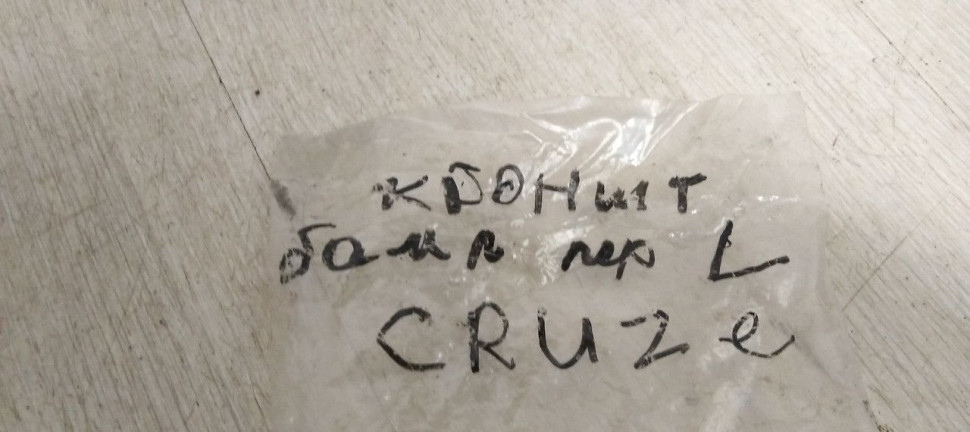 кроншт
бамп пер L
CRUZe